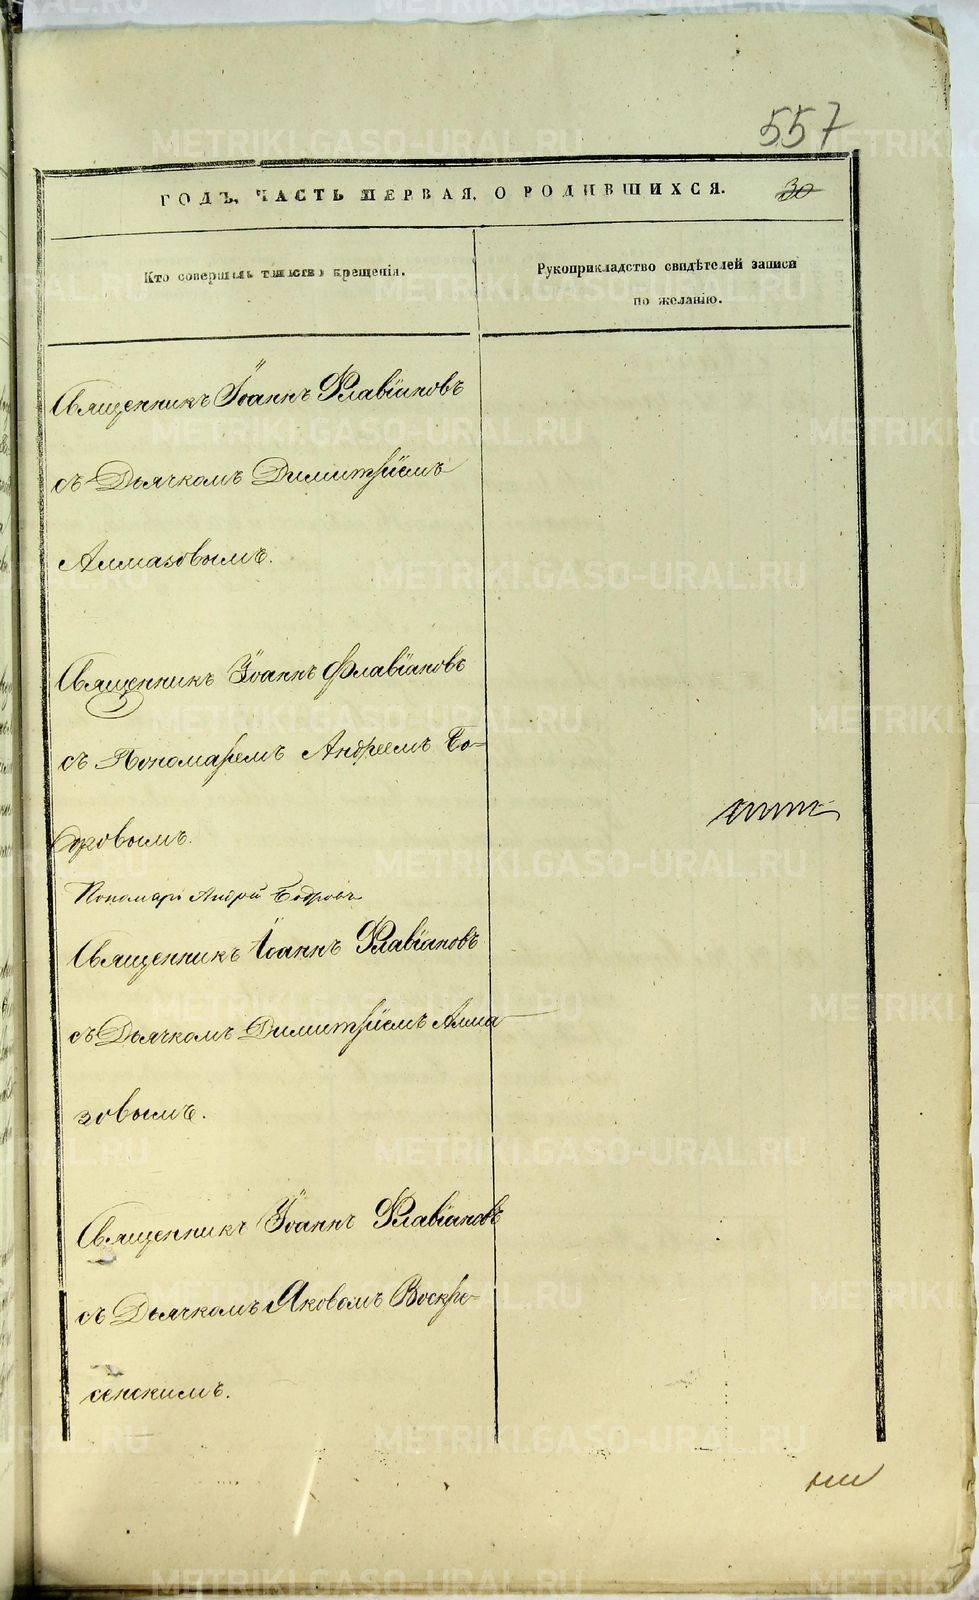 557
ГОДЪ, ЧАСТЬ ПЕРВАЯ, О РОДИВШИХСЯ. 30
Кто совершалъ таинство крещенія.
Рукоприкладство свидѣтелей записи
по желанію.
Священникъ Іоаннъ Флавіановъ
съ Дьячкомъ Димитріемъ
Алмазовымъ.
Священникъ Іоаннъ Флавіановъ
съ Пономаремъ Андреемъ Бо-
дровымъ.
Пономарь Андрей Бодровъ
Священникъ Іоаннъ Флавіановъ
съ Дьячкомъ Димитріемъ Алма
зовымъ.
Священникъ Іоаннъ Флавіановъ
съ Дьячкомъ Яковомъ Воскре-
сенскимъ.
METRIKI.GASO-URAL.RU